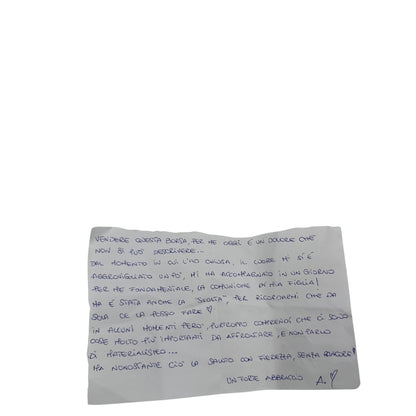 VENDERE QUESTA BORSA, PER ME OGGI È UN DOLORE CHE
NON SI PUÒ DESCRIVERE...
DAL MOMENTO IN CUI L'HO CHIUSA, IL CUORE MI SI È
AGGROVIGLIATO UN PO', MI HA ACCOMPAGNATO IN UN GIORNO
PER ME FONDAMENTALE, LA COMUNIONE DI MIA FIGLIA!
MA È STATA ANCHE LA "SVOLTA", PER RICORDARMI CHE DA
SOLA CE LA POSSO FARE ♡
IN ALCUNI MOMENTI PERÒ, PURTROPPO COMPRENDI CHE CI SONO
COSE MOLTO PIÙ IMPORTANTI DA AFFRONTARE, E NON PARLO
DI MATERIALISMO...
MA NONOSTANTE CIÒ LA SALUTO CON FIEREZZA, SENZA RANCORE♡
UN FORTE ABBRACCIO A.♡